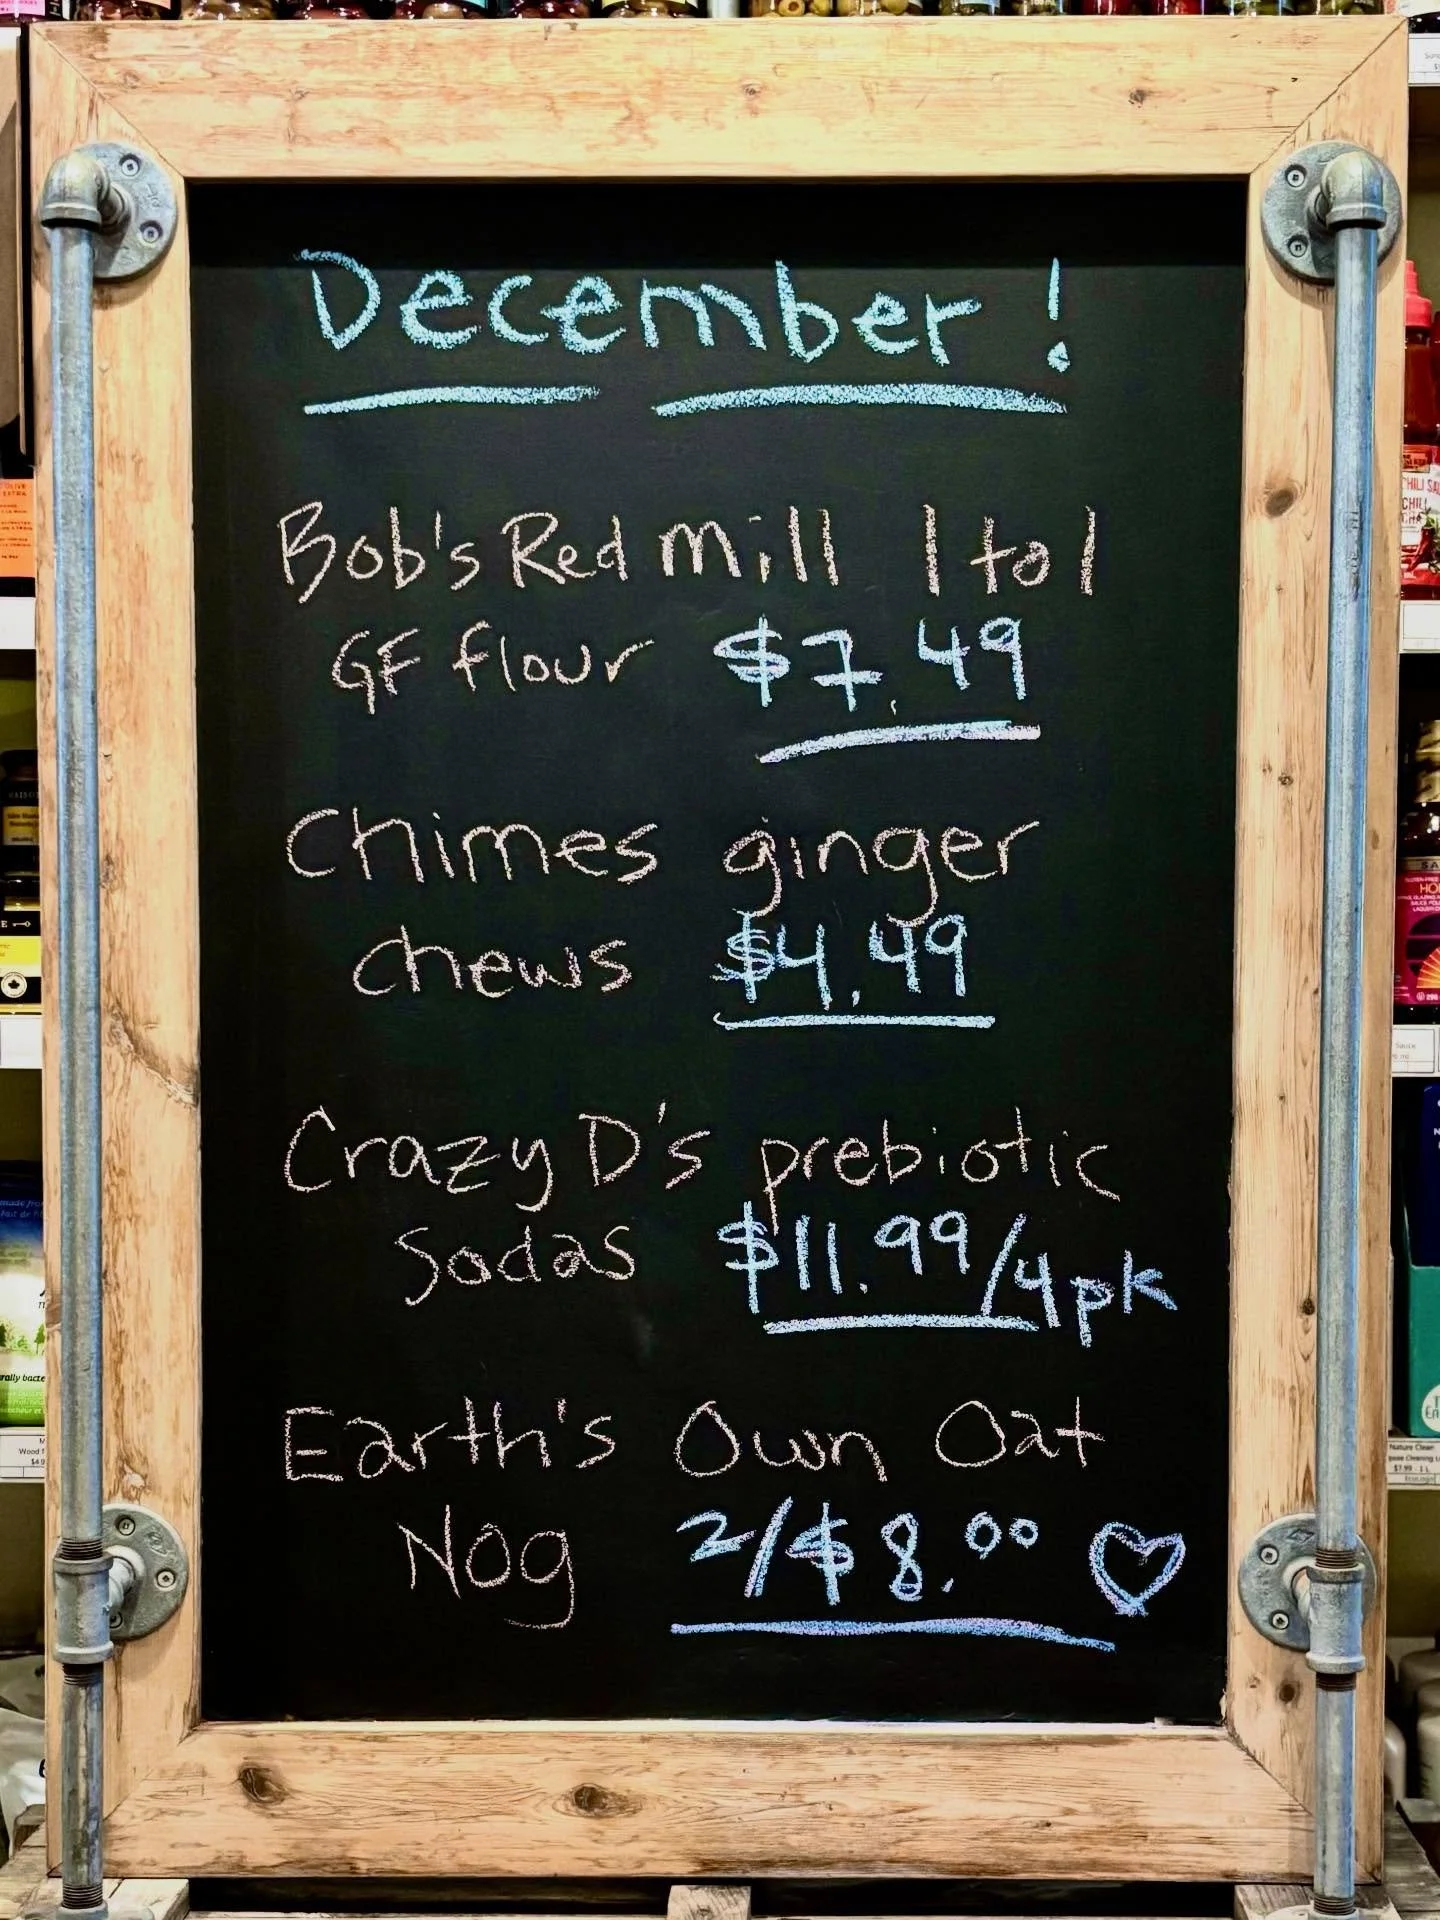 December!
Bob's Red Mill 1 to 1
GF flour $7.49
Chimes ginger
chews $4.49
Crazy D's prebiotic
Sodas $11.99/4pk
Earth's Own Oat
Nog 2/$8.00
CHILI
Nature Clean
$7.99 - 1 L